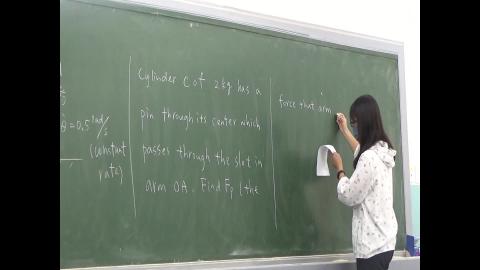 θ̇ = 0.5 rad/s
(constant
rate)
Cylinder C of 2 kg has a
pin through its center which
passes through the slot in
arm OA. Find Fp (the
force that arm